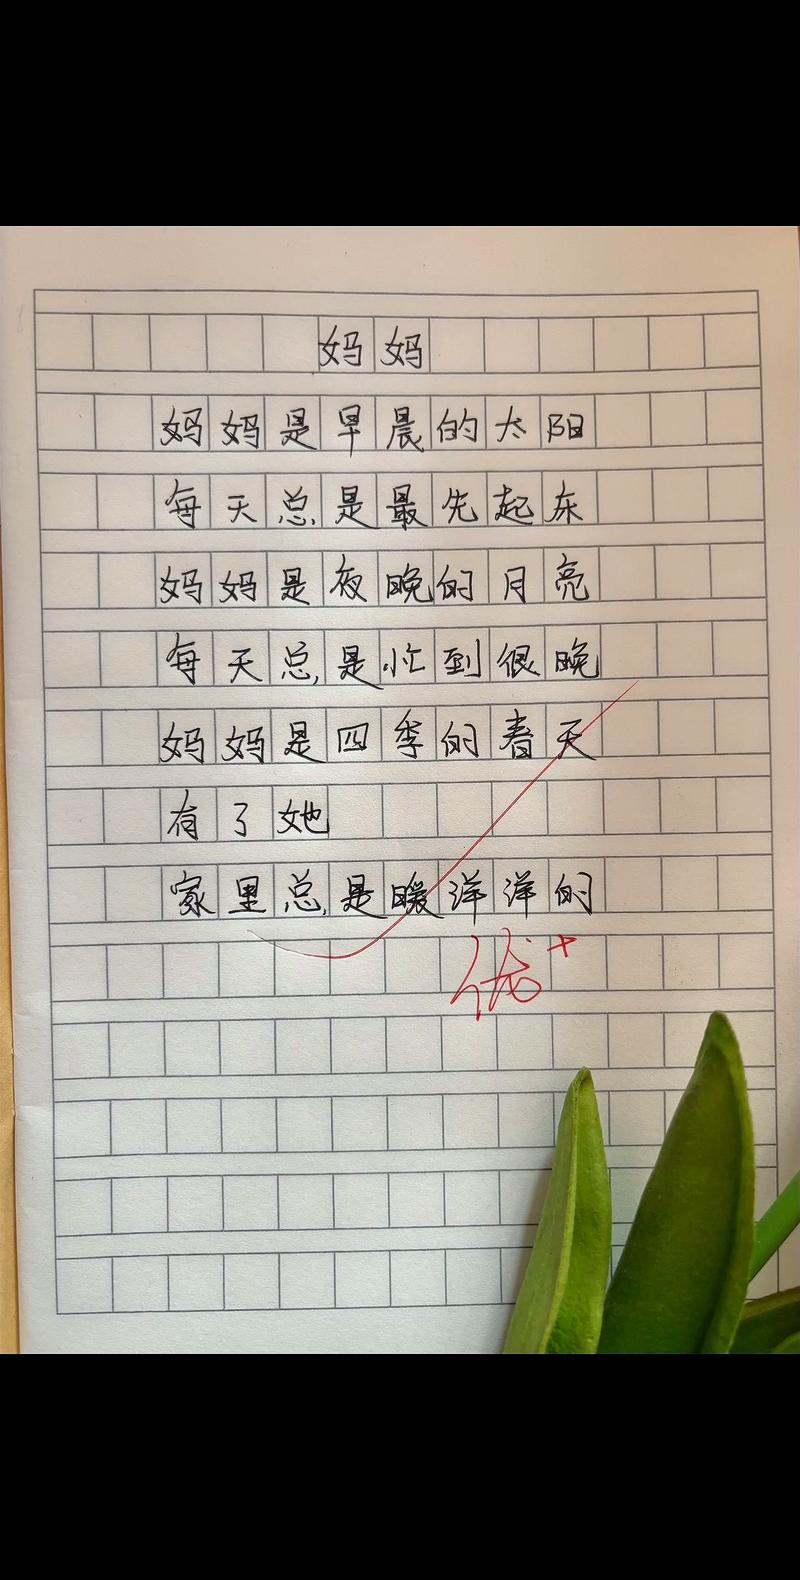 妈妈
妈妈是早晨的太阳
每天总是最先起床
妈妈是夜晚的月亮
每天总是忙到很晚
妈妈是四季的春天
有了她
家里总是暖洋洋的
优+